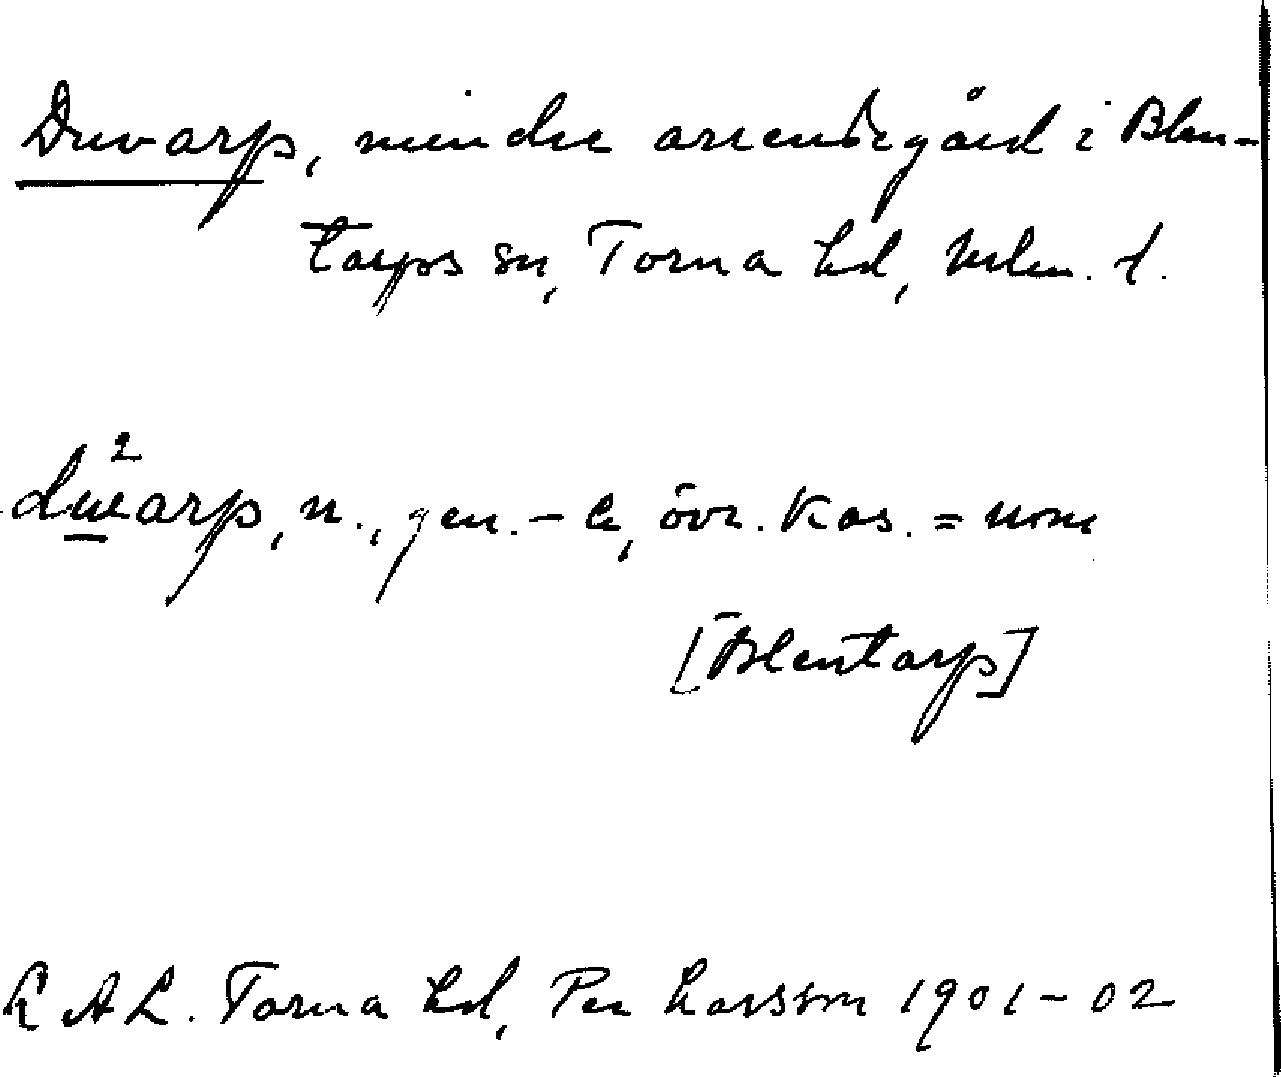 Duvarp, mindre arrendegård i Blen-
tarps sn, Torna hd, Mlm. l.
duvarp, n., gen. - s, övr. kas. = nom
[Blentarp]
LAL. Torna hd, Per Larsson 1901-02